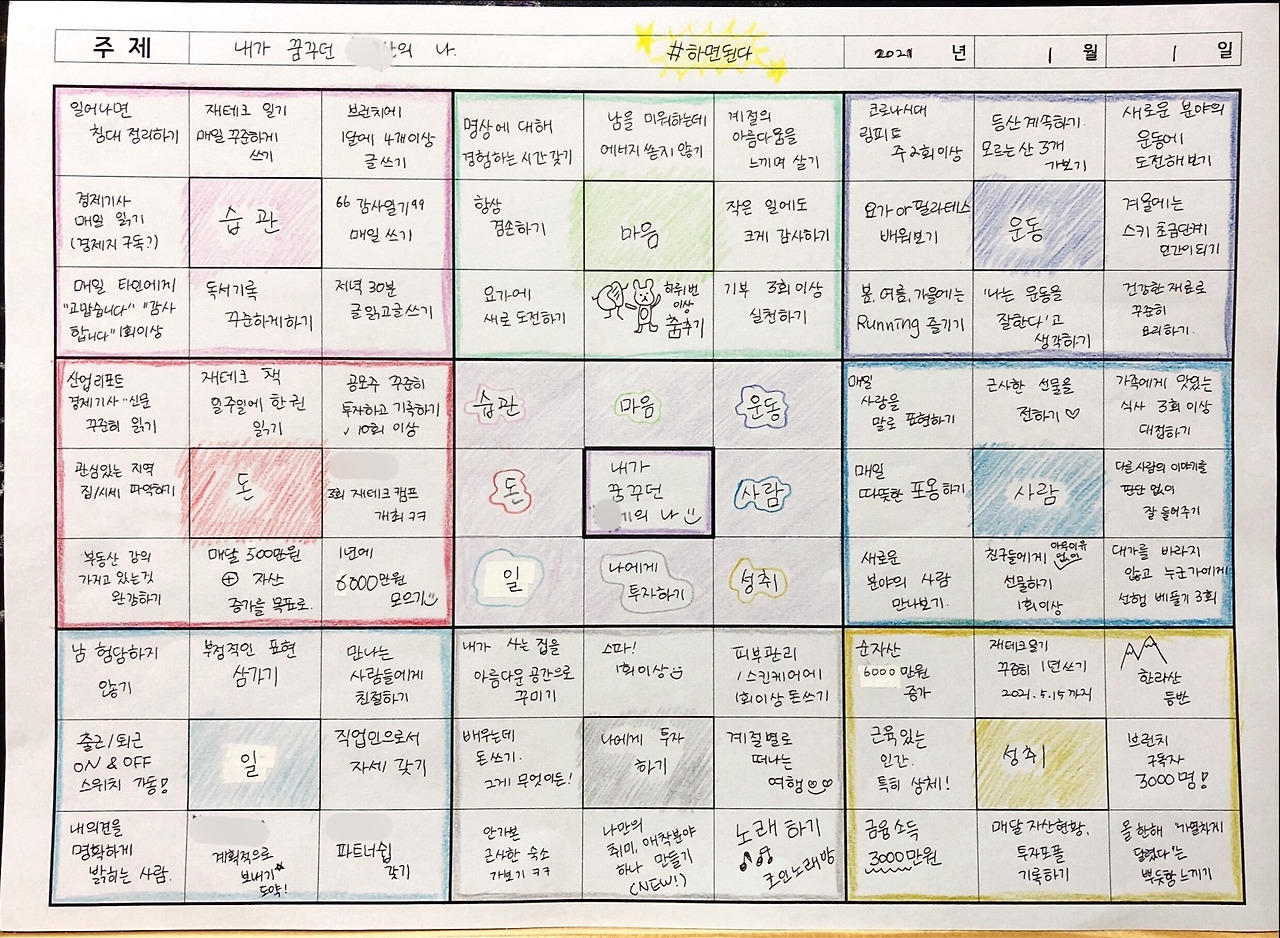 주 제
내가 꿈꾸던 의 나.
#하면된다
2021 년 1 월 1 일
일어나면
침대 정리하기
재테크 일기
매일 꾸준하게
쓰기
브런치에
1달에 4개이상
글쓰기
경제기사
매일 읽기
(경제지 구독?)
습관
"감사일기"
매일 쓰기
매일 타인에게
"고맙습니다" "감사
합니다" 1회이상
독서기록
꾸준하게하기
저녁 30분
글읽고글쓰기
명상에 대해
경험하는 시간 갖기
남을 미워하는데
에너지 쏟지 않기
계절의
아름다움을
느끼며 살기
항상
겸손하기
마음
작은 일에도
크게 감사하기
요가에
새로 도전하기
하루 번
이상
춤추기
기부 3회 이상
실천하기
코로나시대
링피트
주 2회 이상
등산 계속하기.
모르는 산 3개
가보기
새로운 분야의
운동에
도전해보기
요가 or 필라테스
배워보기
운동
겨울에는
스키 초급단계
인간이 되기
봄, 여름, 가을에는
Running 즐기기
'나는 운동을
잘한다'고
생각하기
건강한 재료로
꾸준히
요리하기.
산업리포트
경제기사·신문
꾸준히 읽기
재테크 책
일주일에 한권
읽기
공모주 꾸준히
투자하고 기록하기
10회 이상
관심있는 지역
집/시세 파악하기
돈
3회 재테크 캠프
개최 ㅋㅋ
부동산 강의
가지고 있는것
완강하기
매달 500만원
⊕ 자산
증가를 목표로.
1년에
6000만원
모으기
습관
마음
운동
돈
내가
꿈꾸던
의 나
사람
일
나에게
투자하기
성취
매일
사랑을
말로 표현하기
근사한 선물을
전하기♡
가족에게 맛있는
식사 3회 이상
대접하기
매일
따뜻한 포옹하기
사람
다른 사람의 이야기를
판단 없이
잘 들어주기
새로운
분야의 사람
만나보기.
친구들에게 아무이유
없이
선물하기
1회이상
대가를 바라지
않고 누군가에게
선행 베풀기 3회
남 험담하지
않기
부정적인 표현
삼가기
만나는
사람들에게
친절하기
출근/퇴근
ON & OFF
스위치 가동!
일
직업인으로서
자세 갖기
내 의견을
명확하게
밝히는 사람.
계획적으로
보내기
도약!
파트너쉽
갖기
내가 사는 집을
아름다운 공간으로
꾸미기
스파!
1회이상
피부관리
/스킨케어에
1회이상 돈쓰기
배우는데
돈쓰기.
그게 무엇이든!
나에게 투자
하기
계절별로
떠나는
여행
안가본
근사한 숙소
가보기 ㅋㅋ
나만의
취미, 애착분야
하나 만들기
(NEW!)
노래 하기
♪♫
코인노래방
순자산
6000만원
증가
재테크일기
꾸준히 1년쓰기
2021.5.15까지
한라산
등반
근육 있는
인간.
특히 상체!
성취
브런치
구독자
3000명!
금융소득
3000만원
매달 자산현황.
투자포폴
기록하기
올 한해 "가열차게
달렸다"는
뿌듯함 느끼기